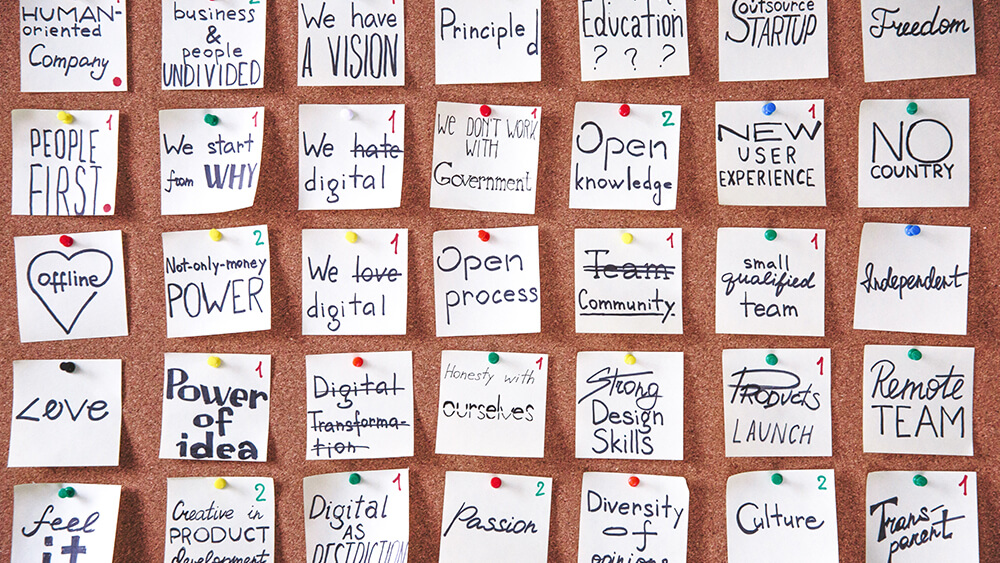 HUMAN-
oriented
Company
business
&
people
UNDIVIDED
We have
A VISION
Principled
Education
? ? ?
Outsource
STARTUP
Freedom
1
PEOPLE
FIRST
1
We start
from WHY
1
We hate
digital
1
We DON'T WORK
WITH
Government
2
Open
knowledge
1
NEW
USER
EXPERIENCE
NO
COUNTRY
offline
2
Not-only-money
POWER
1
We love
digital
Open
process
1
Team
Community
1
small
qualified
team
Independent
Love
1
Power
of
idea
1
Digital
Transforma-
tion
1
Honesty with
ourselves
Strong
Design
Skills
1
PRODUCTS
LAUNCH
Remote
TEAM
feel
it
2
Creative in
PRODUCT
development
1
Digital
AS
2
Passion
Diversity
of
opinions
2
Culture
1
Trans-
parent